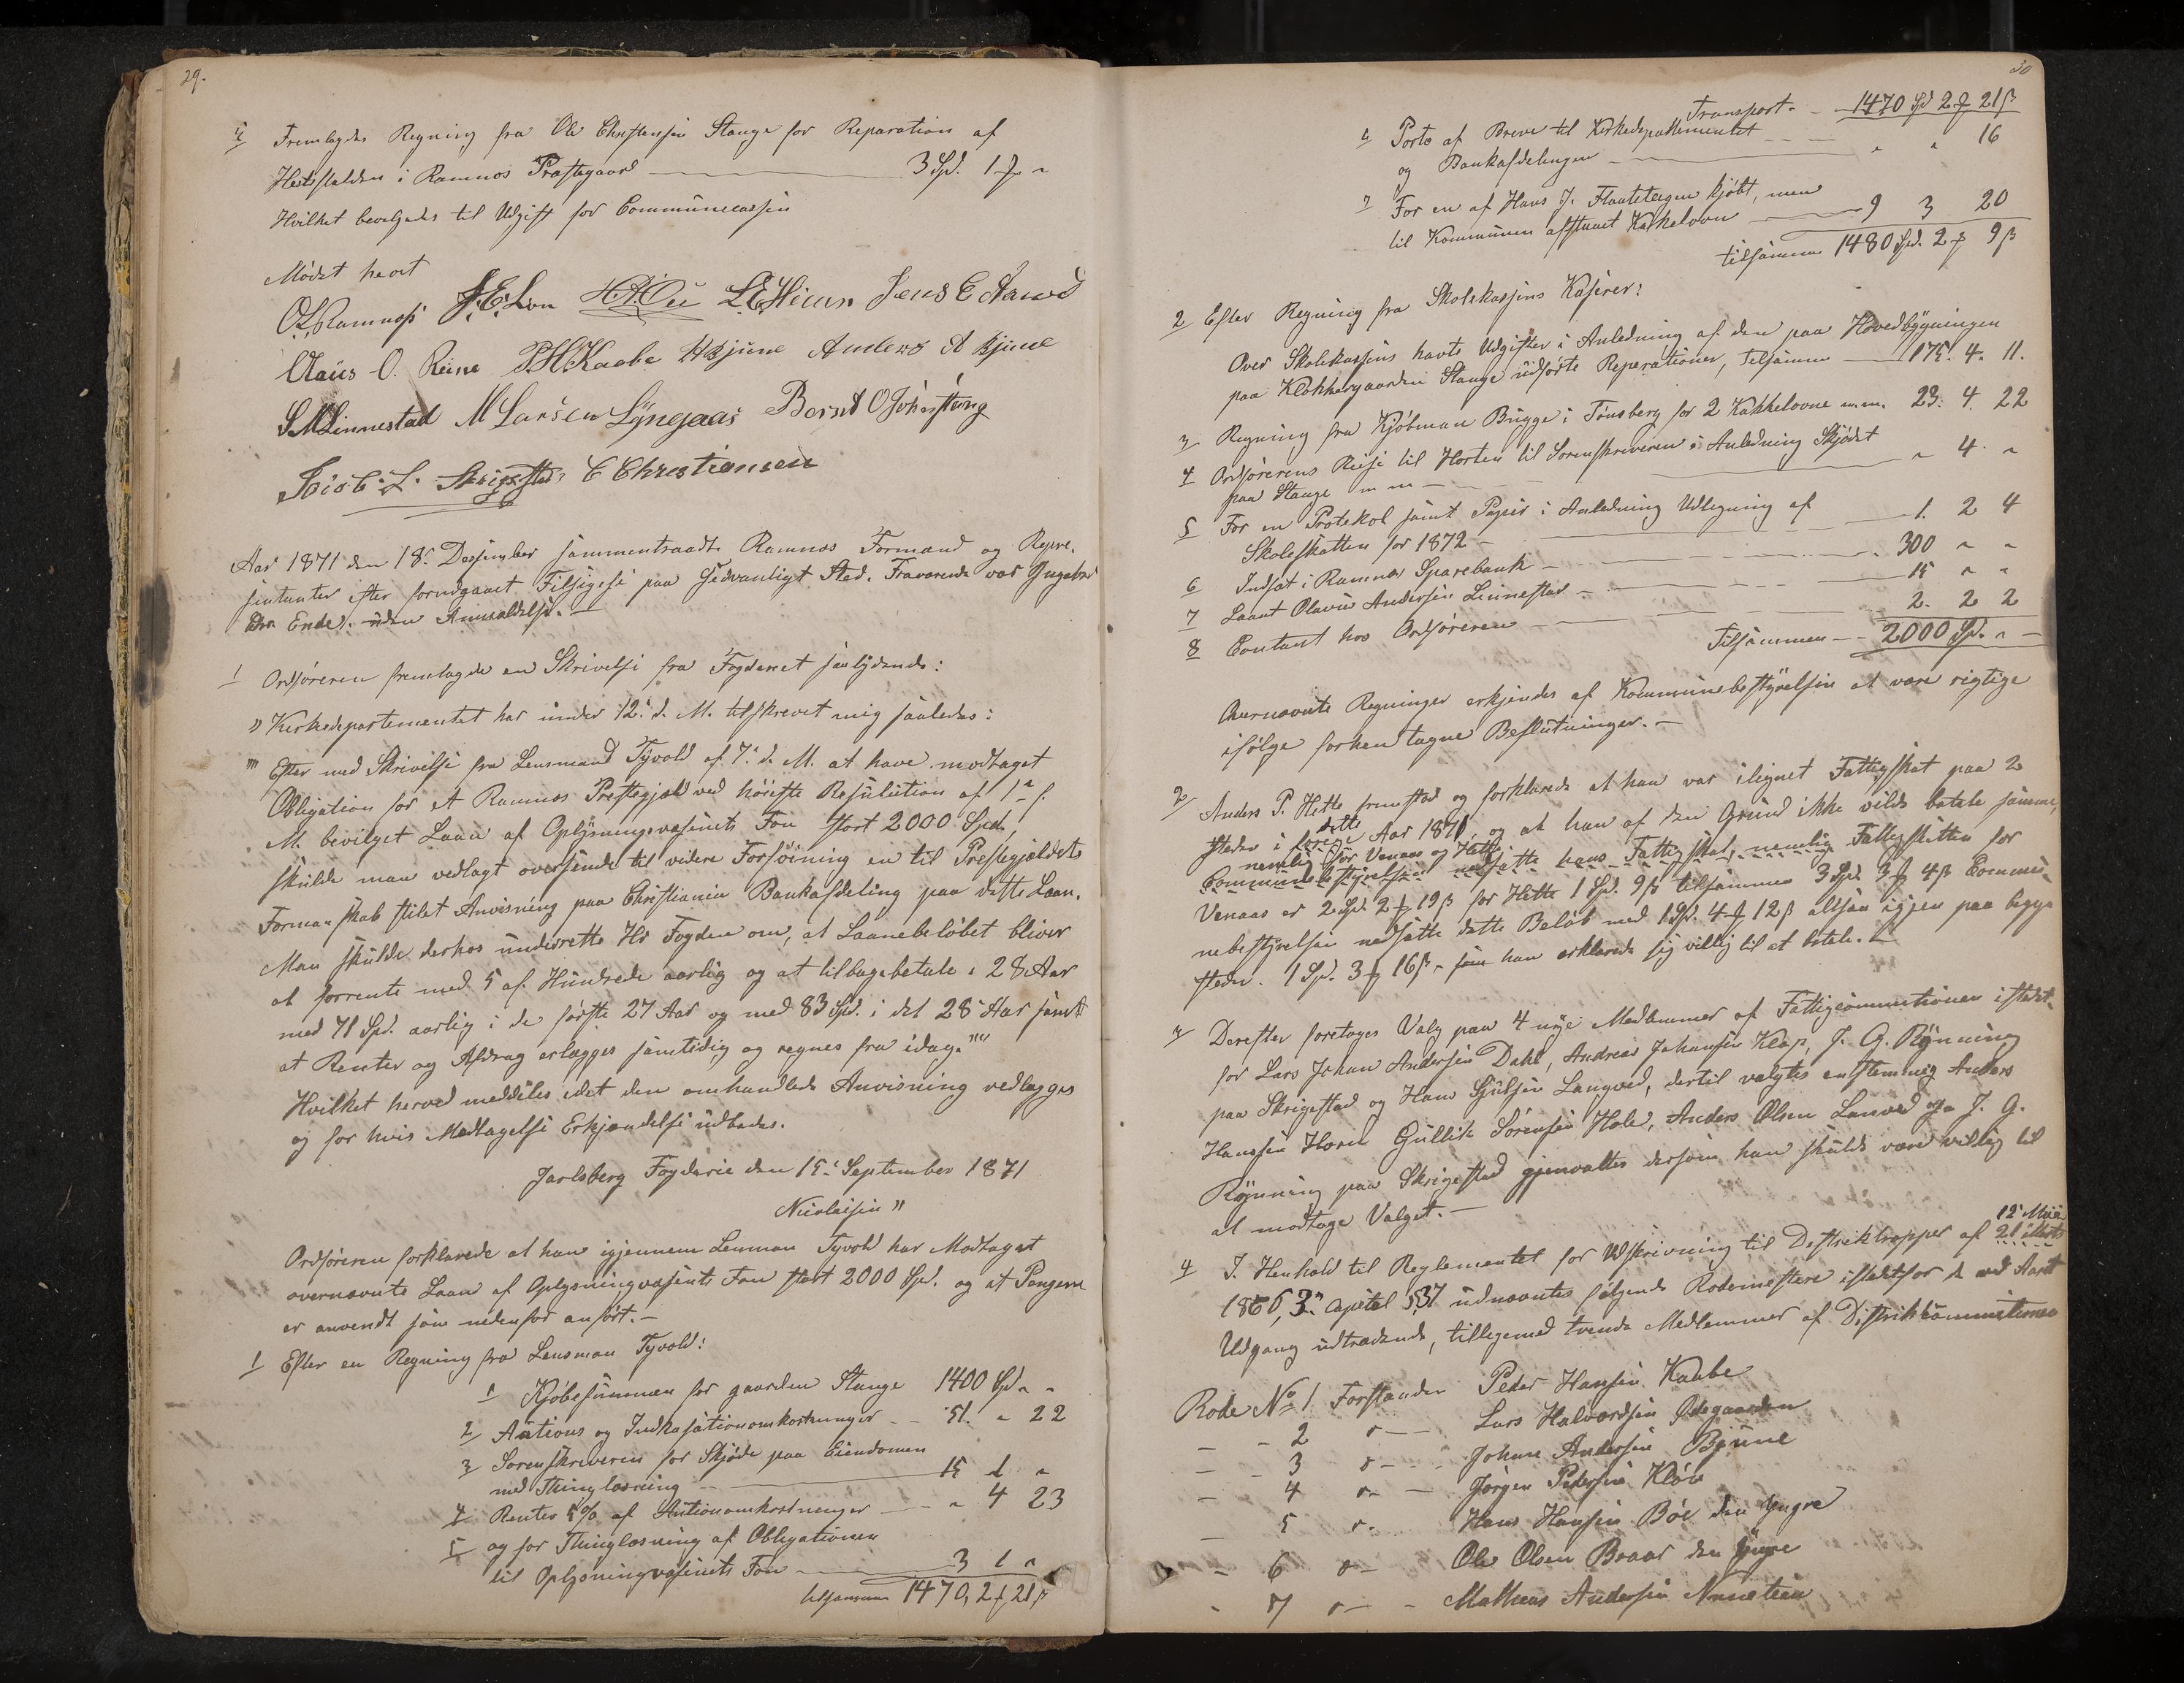 29.
4 Fremlagdes Regning fra Ole Christensen Stange for Reparation af
Hestestalden i Ramnes Præstegaard 3 Spd. 1 ƒ "
Hvilket bevilgedes til Udgift for Communecassen
Mødet hævet
O.L. Ramnæss J.E. Lon L.E. Hiem Jens E Aanæs
Claus O. Reine P.H. Kaabe H Bjune Anders A Bjune
S.M. Linnestad M Larsen Lyngaas Bernt O Johnstang
Jacob L. Skrigestad C Christiansen
Aar 1871 den 18. Desember sammentraadte Ramnæs Formænd og Repræ-
sentanter efter forudgaaet Tilsigelse paa sædvanligt Sted. Fraværende var Ingebret
Ende. uden Anmeldelse. —
1 Ordføreren fremlagde en Skrivelse fra Fogderiet saalydende:
" Kirkedepartementet har under 12. d. M. tilskrevet mig saaledes:
"" Efter med Skrivelse fra Lensmand Tyvold af 7. d. M. at have modtaget
Obligation for et Ramnæs Prestegjæld ved høieste Resulution af 1. f.
M. bevilget Laan af Oplysningsvæsenets Fon stort 2000 Spd.,
skulde man vedlagt oversende til videre Forføining en til Prestegjældets
Formanskab stilet Anvisning paa Christiania Bankafdeling paa dette Laan.
Man skulde derhos underrette Hr Fogden om, at Laanebeløbet bliver
at forrente med 5 af Hundrede aarlig og at tilbagebetale i 28 Aar
med 71 Spd. aarlig i de første 27 Aar og med 83 Spd. i det 28 Aar samt
at Renter og Afdrag erlægges samtidig og regnes fra idag.""
Hvilket herved meddeles idet den omhandlede Anvisning vedlægges
og for hvis Modtagelse Erkjendelse udbedes.
Jarlsberg Fogderie den 15. September 1871
Nicolaisen "
Ordføreren forklarede at han igjennem Lensman Tyvold har Modtaget
overnævnte Laan af Oplysningvæsenets Fon stort 2000 Spd. og at Pengene
er anvendt som nedenfor anført. —
1 Efter en Regning fra Lensman Tyvold:
1 Kjøbesummen for gaarden Stange 1400 Spd " "
2 Autions og Indkasationomkostninger 51. " 22
3 Sorenskriveren for Skjøde paa Eiendomen
med Thinglæsning 15 1 "
4 Renter 5% af Autionomkostninger " 4 23
5 og for Thinglæsning af Obligationen
til Oplysningvæsenets Fon 3 1 "
tilsammen 1470, 2 ƒ 21 β
30
Transport 1470 Spd 2 ƒ 21 β
6 Porto af Breve til Kirkedepartementet
og Bankafdelingen " " 16
7 For en af Hans J. Flaateteigen kjøbt, men
til Kommunen afstaaet Kakkelovn 9 3 20
tilsammen 1480 Spd. 2 ƒ 9 β
2 Efter Regning fra Skolekassens Kaserer:
Over Skolekassens havte Udgifter i Anledning af den paa Hovedbygningen
paa Klokkergaarden Stange udførte Reparationer, tilsammen 175. 4. 11.
3 Regning fra Kjøbman Brygge i Tønsberg for 2 Kakkelovne m.m. 23. 4. 22
4 Ordførerens Reise til Horten til Sorenskriveren i Anledning Skjødet
paa Stange m m " 4. "
5 For en Protekol samt Papir i Anledning Udlegning af
Skoleskatten for 1872 1. 2 4
6 Indsat i Ramnæs Sparebank 300 " "
7 Laant Olavus Andersen Linnestad 15 " "
8 Contant hos Ordføreren 2. 2 2
Tilsammen 2000 Spd. " —
Overnævnte Regninger erkjendes af Kommunebestyrelsen at være rigtige
ifølge forhen tagne Beslutninger. —
2 Anders P. Hette fremstod og forklarede at han var ilignet Fattigskat paa 2
Steder i forrige dette Aar 1871, og at han af den Grund ikke vilde betale samme,
nemlig for Venaas og Hette
Communebestyrelsen nedsatte hans Fattigskat, nemlig Fattigskatten for
Venaas er 2 Spd. 2 ƒ 19 β for Hette 1 Spd. 9 β tilsammen 3 Spd. 3 ƒ 4 β Commu-
nebestyrelsen nedsatte dette Beløb med 1 Spd. 4 ƒ 12 β altsaa igjen paa begge
steder. 1 Spd. 3 ƒ 16 β. som han erklærede sig villig til at betale.
3 Derefter foretoges Valg paa 4 nye Medlemmer af Fattigcommitionen istedet-
for Lars Johan Andersen Dahl, Andreas Johansen Klop, J. G. Rynning
paa Skrigestad og Hans Sjulsen Langved, dertil valgtes enstemmig Anders
Hanssen Horn Gullik Sørensen Hole, Anders Olsen Lanved og J. G.
Rynning paa Skrigestad gjenvaltes dersom han skulde være villig til
at modtage Valget. —
4 I Henhold til Reglementet for Udskrivning til Distriktropper af 21 Marts 12 Mai
1866, 3. Capitel §37 udnævntes følgende Rodemestere istedetfor de ved Aaret
Udgang udtrædende, tillegemed tvende Medlemmer af Distrikkommitionen
Rode No 1 Forstander Peder Hansen Kaabe
— - 2 — Lars Halvordsen Ødegaarden
— - 3 — Johan Andersen Bjune
- 4 — Jørgen Pedersen Kløv
5 — Hans Hansen Bøe den yngre
- 6 — Ole Olsen Braar den yngre
- 7 — Mathias Andersen